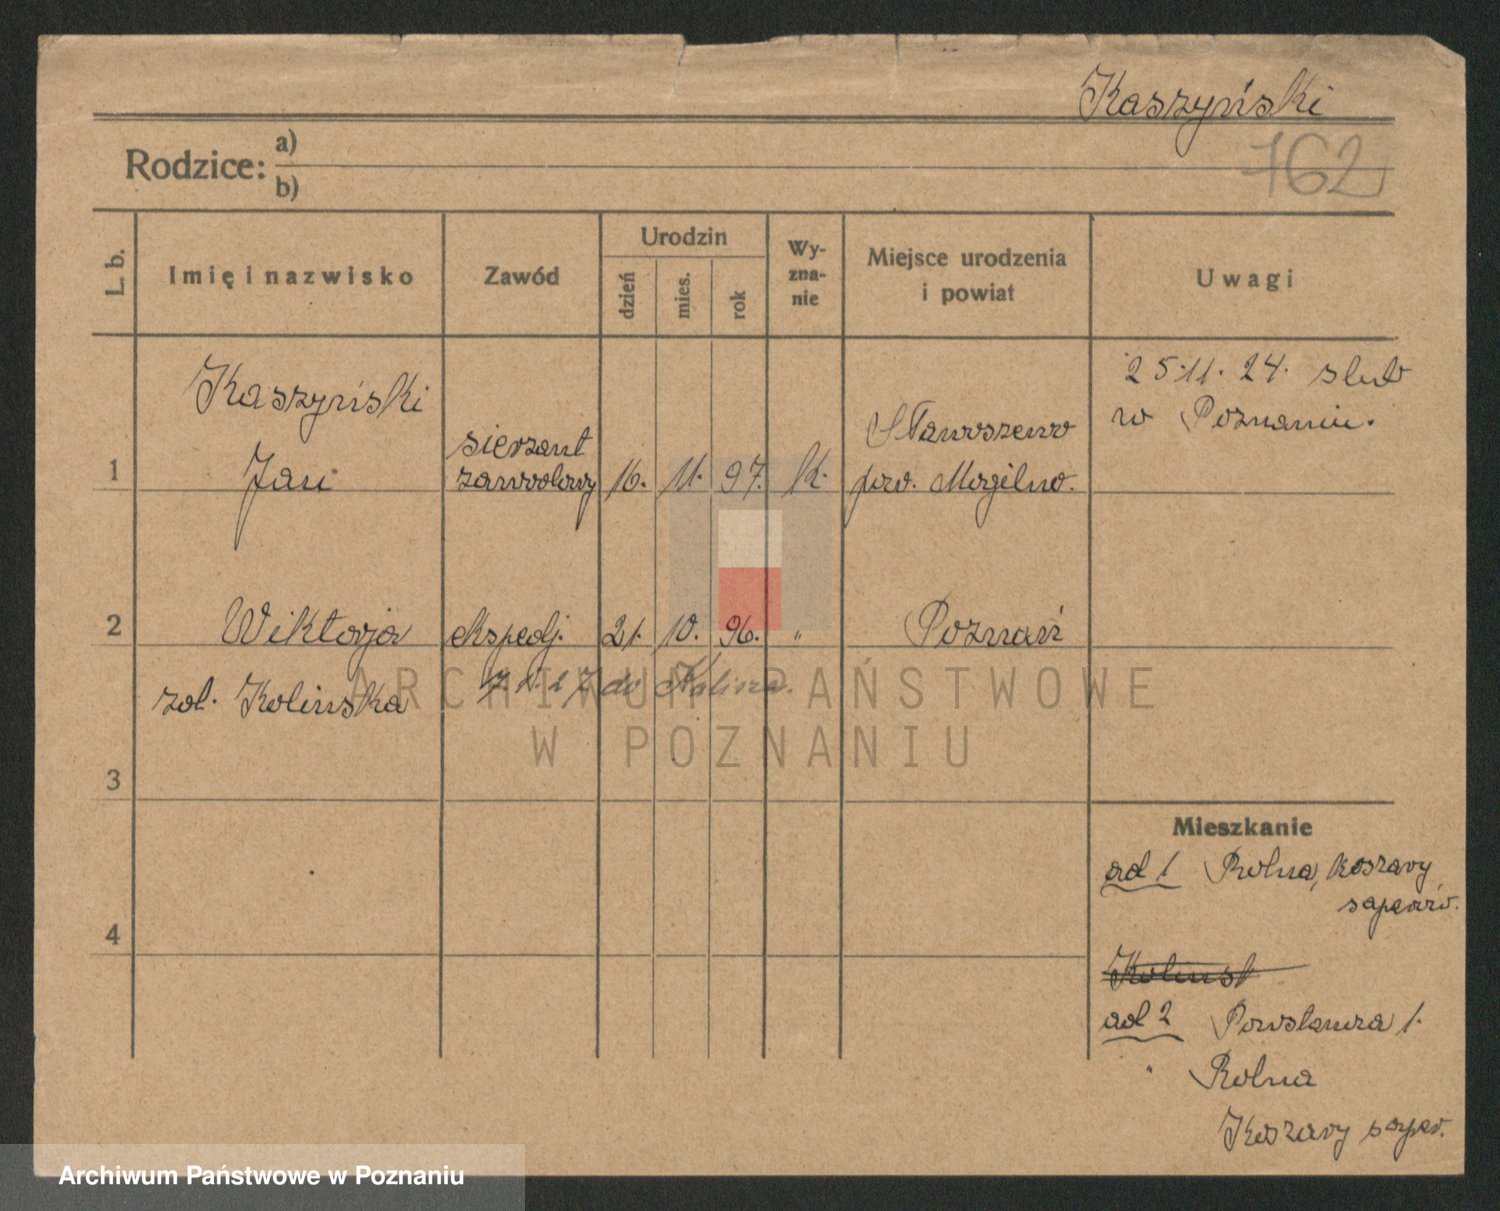 Kaszyński
Rodzice: a)
b)
162
L. b.
Imię i nazwisko
Zawód
Urodzin
dzień
mies.
rok
Wy-
zna-
nie
Miejsce urodzenia
i powiat
Uwagi
Kaszyński
25.11.24. ślub
w Poznaniu.
1 Jan sierżant
zawodowy 16. 11. 97. k. pow. Mogilno.
2 Wiktorja ekspedj. 21. 10. 96. " Poznań
zol. Kolińska
do Kalisza.
ARCHIWUM PAŃSTWOWE
W POZNANIU
3
4
Mieszkanie
ad 1 Rolna, koszary
saperów.
Kolinsk
ad 2 1.
" Rolna
Koszary saper.
Archiwum Państwowe w Poznaniu